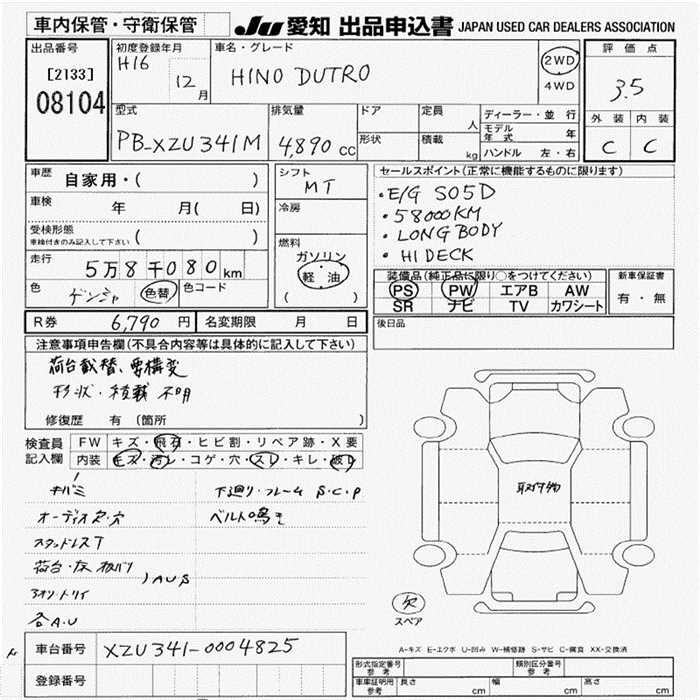 車内保管・守衛保管
JU 愛知 出品申込書 JAPAN USED CAR DEALERS ASSOCIATION
出品番号
[2133]
08104
初度登録年月
H16
12 月
車名・グレード
HINO DUTRO
2WD
4WD
評価点
3.5
外装 内装
C C
型式
PB-XZU341M
排気量
4,890 cc
ドア
形状
定員
人
積載
kg
ディーラー・並行
モデル年式 年
ハンドル 左・右
車歴 自家用・( )
車検 年 月( 日)
受検形態
車検付きのみ記入して下さい ( )
走行 5万8千080km
色 ゲンシャ 色替 色コード
シフト
MT
冷房
燃料
ガソリン
軽・油
( )
セールスポイント(正常に機能するものに限ります)
・E/G S05D
・58000KM
・LONG BODY
・HI DECK
装備品(純正品に限り○をつけてください)
PS PW エアB AW
SR ナビ TV カワシート
新車保証書
有・無
R券 6,790 円 名変期限 月 日
後日品
注意事項申告欄(不具合内容等は具体的に記入して下さい)
荷台載替、要構変
形状・積載 不明
修復歴 有 (箇所 )
検査員
記入欄
FW キズ・飛石・ヒビ割・リペア跡・X要
内装 キズ・汚レ・コゲ・穴・スレ・キレ・破レ
キバミ
オーディオ欠・穴
スタッドレスT
下廻り・フレーム S・C・P
ベルト鳴き
各A・U
取付物
欠
スペア
A-キズ E-エクボ U-凹み W-補修跡 S-サビ C-腐食 XX-交換済
車台番号 XZU341-0004825
登録番号
形式指定番号
参考
類別区分番号
参考
車庫証明用
参考
長さ cm 幅 cm 高さ cm